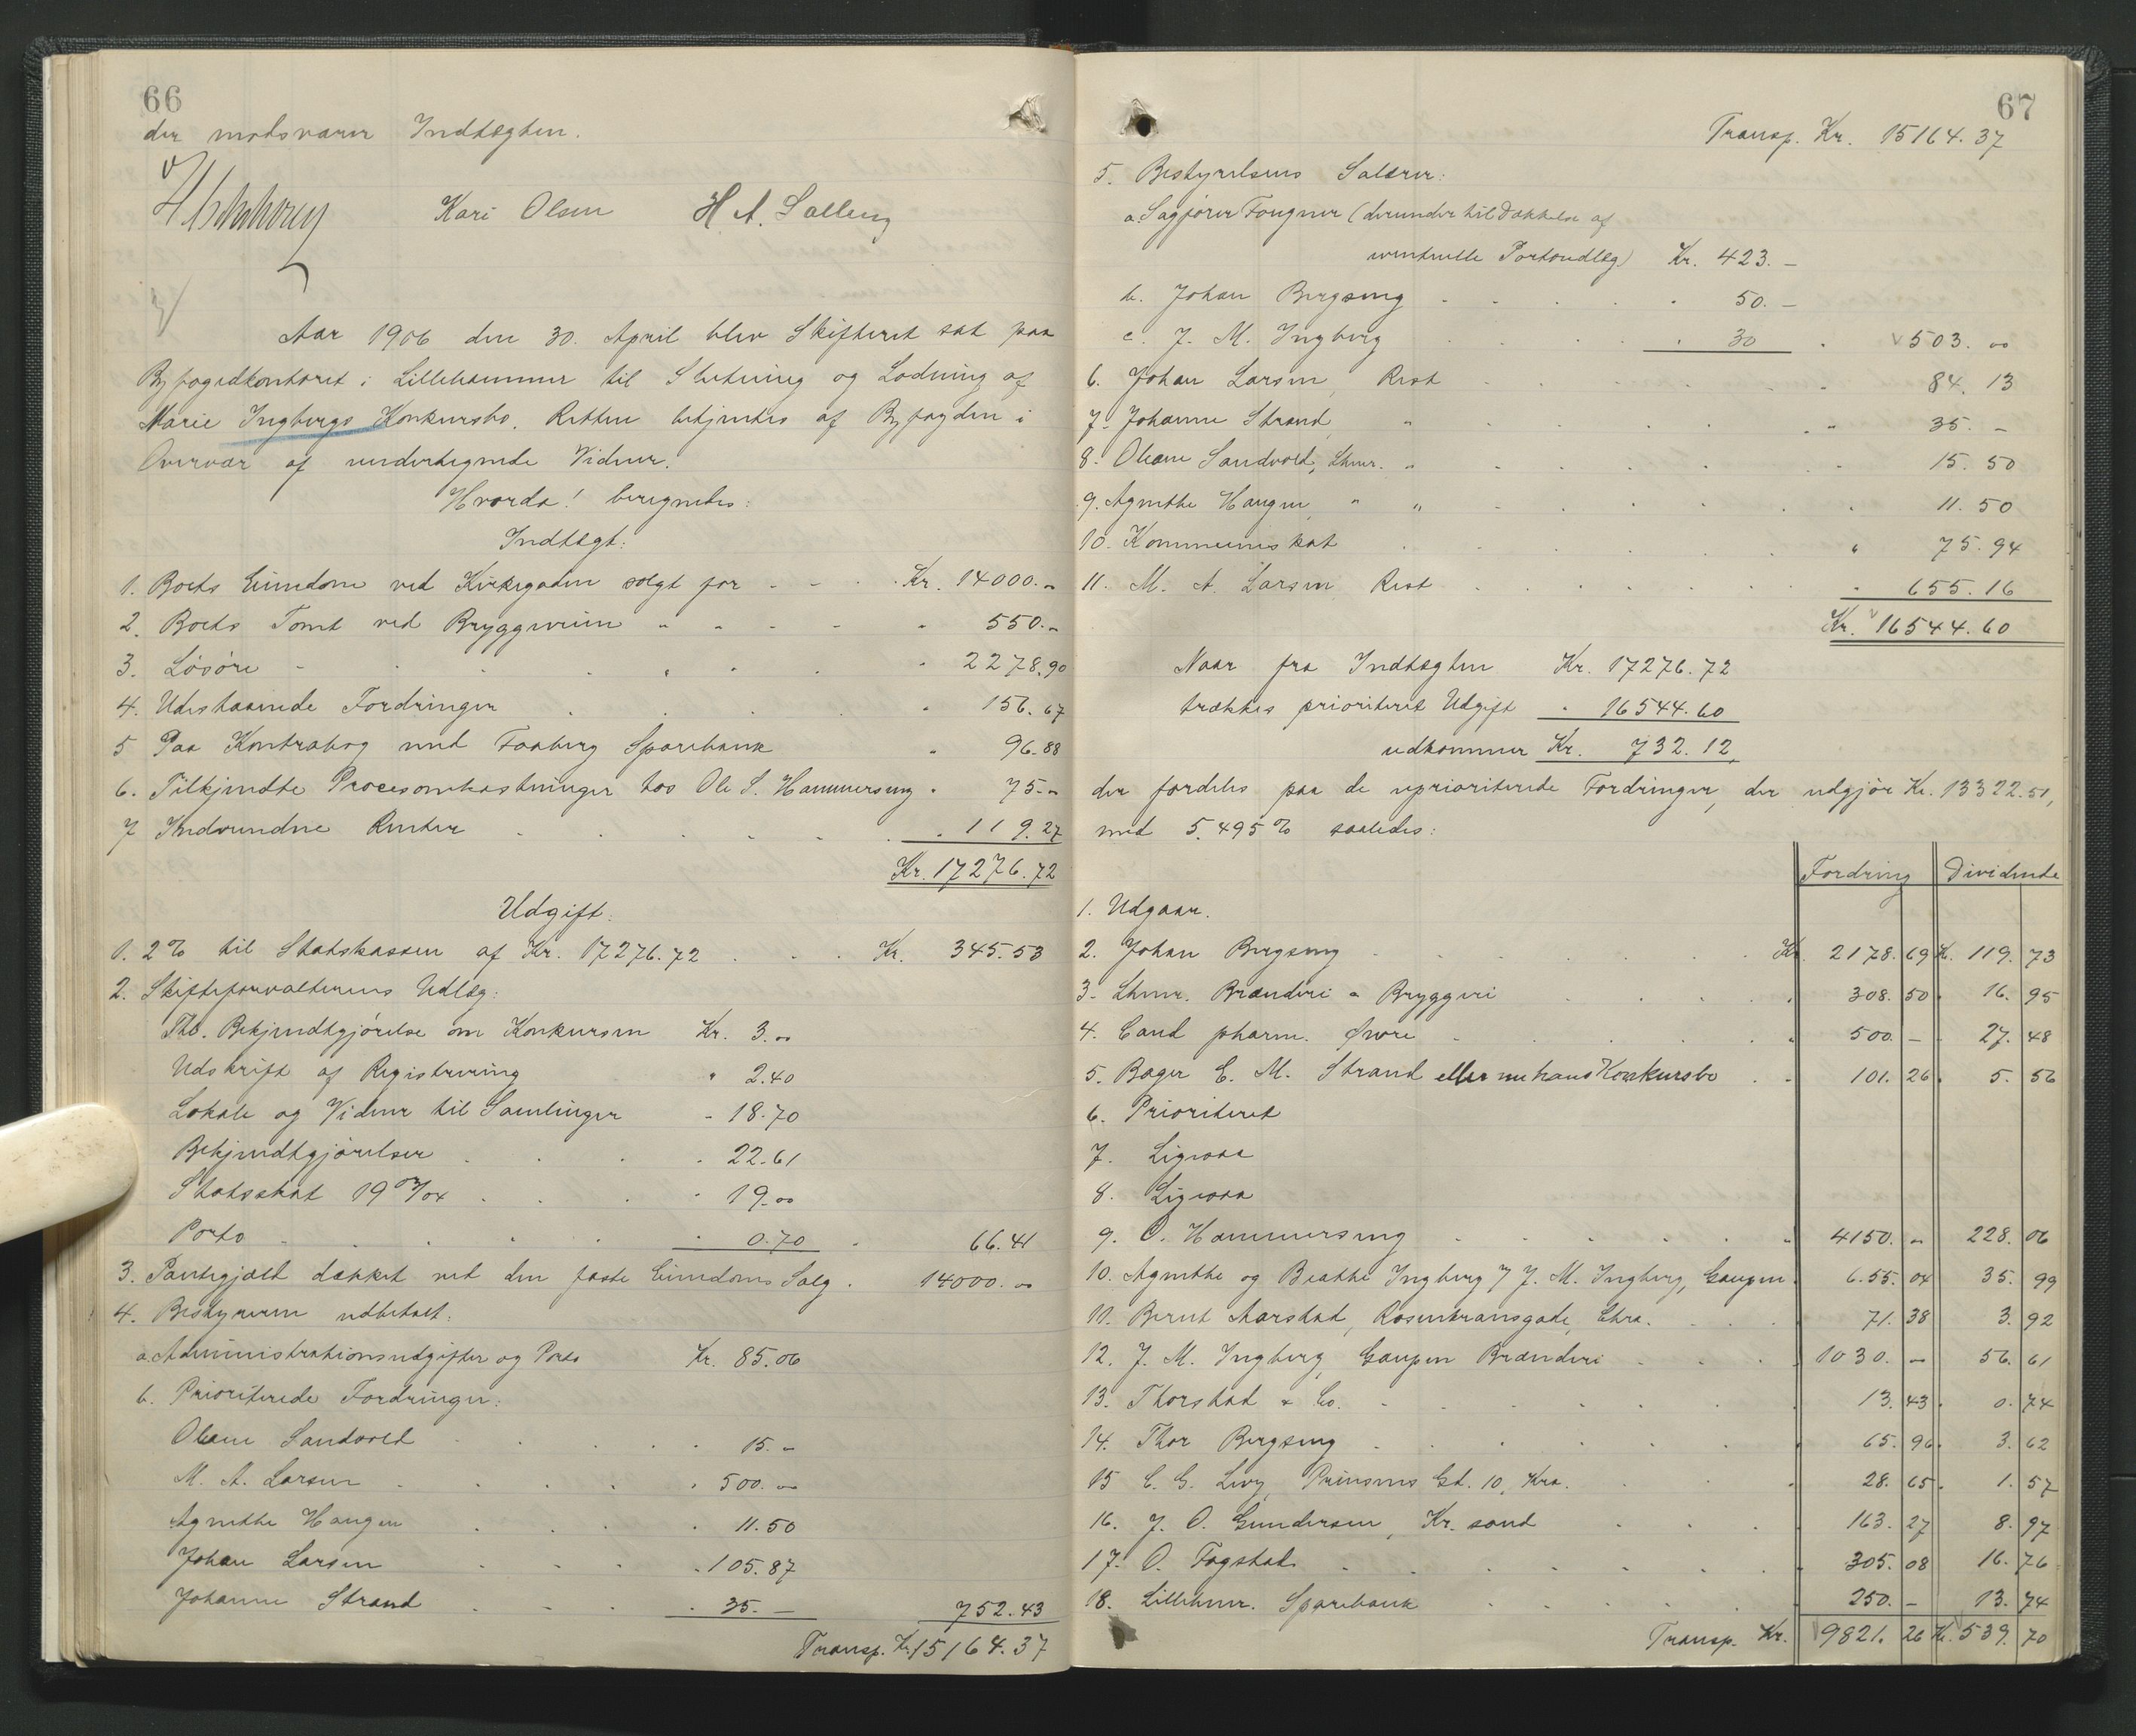 66
der modsvarer Indtægten.
Kari Olsen H A. Salleng
Aar 1906 den 30. April blev Skifteret sat paa
Byfogedkontoret i Lillehammer til Slutning og Lodning af
Marie Ingbergs Konkursbo. Retten betjentes af Byfogden i
Overvær af undertegnede Vidner.
Hvorda! beregnedes:
Indtægt:
1. Boets Eiendom ved Kirkegaden solgt for - - . Kr. 14000.-
2. Boets Tomt ved Bryggerien " - - - " 550.-
3. Løsøre - . . . " . . " 2278.90
4. Udestaaende Fordringer . . . . " 156.67
5 Paa Kontrabog med Faaberg Sparebank " 96.88
6. Tilkjendte Procesomkostninger hos Ole S. Hammerseng " 75.-
7 Indvundne Renter . . . - - . 119.27
Kr. 17276.72
Udgift:
1. 2% til Statskassen af Kr. 17276.72 . . . Kr. 345.53
2. Skifteforvalterens Udlæg:
Tlb. Bekjendtgjørelse om Konkursen Kr. 3.00
Udskrift af Registrering " 2.40
Lokale og Vidner til Samlinger - 18.70
Bekjendtgjørelser . . . . 22.61
Statsskat 1903/04 . . . . 19.00
Porto - . . . . 0.70 . 66.41
3. Pantegjæld dækket ved den faste Eiendoms Salg . 14000.00
4. Bestyreren udbetalt:
a. Administrationsudgifter og Porto Kr. 85.06
b. Prioriterede Fordringer:
Oleane Sandvold . . . . . 15.-
M. A. Larsen . . . . . 500.00
Agnethe Haugen . . . . 11.50
Johan Larsen . . . . 105.87
Johanne Strand . - . . 35.- 752.43
Transp. Kr. 15164.37
67
Transp. Kr. 15164.37
5. Bestyrelsens Salærer:
a. Sagfører Fougner (derunder til Dækkelse af
eventuelle Portoudlæg) Kr. 423.-
b. Johan Bergseng . . . . . 50.-
c. J. M. Ingberg . . . . . 30 . 503.00
6. Johan Larsen, Rest . . . . . 84. 13
7. Johanne Strand, " . . . . . " 35. -
8. Oleane Sandvold, Lhmr. " . . . . 15. 50
9. Agnethe Haugen, " " . . . . . 11. 50
10. Kommuneskat . . . . " 75. 94
11. M. A. Larsen, Rest . . . . . " 655. 16
Kr. 16544.60
Naar fra Indtægten Kr. 17276.72
trækkes prioriteret Udgift " 16544.60
udkommer Kr. 732.12,
der fordeles paa de uprioriterede Fordringer, der udgjør Kr. 13322.51,
med 5.495% saaledes:
Fordring Dividende
1. Udgaar.
2. Johan Bergseng . . . . . Kr. 2178. 69 K. 119. 73
3. Lhmr. Brænderi & Bryggeri . . . . 308. 50 . 16. 95
4. Cand pharm. Øvre . . . . . 500. - . 27. 48
5. Bager E. M. Strand eller nu hans Konkursbo . . 101. 26 . 5. 56
6. Prioriteret
7. Ligesaa
8. Ligesaa
9. O. Hammerseng - . . . . 4150. - 228. 06
10. Agnethe og Beathe Ingberg J. M. Ingberg, Gaupen . 655. 04 35. 99
11. Bernt Aarstad, Rosenkransgade, Chra. . . . 71. 38 3. 92
12. J. M. Ingberg, Gaupen Brænderi . . . 1030. - 56. 61
13. Thorstad & Co. - . . . . 13. 43 . 0. 74
14. Thor Bergseng . . . . . 65. 96 . 3. 62
15 C. G. Levy, Prinsens Gt. 10, Kra. . . . 28. 65 . 1. 57
16. J. O. Gundersen, Kr. sand . . . 163. 27 8. 97
17. O. Fagstad . . . . . . 305. 08 16. 76
18. Lillehmr. Sparebank . . . . . 250. - 13. 74
Transp. Kr. 9821. 26 K. 539. 70